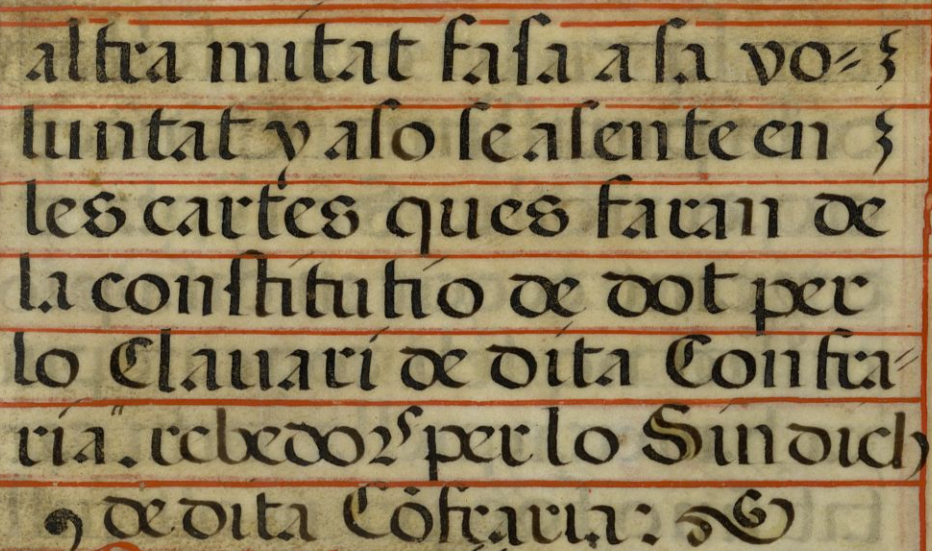 altra mitat fasa a sa vo=
luntat y aso se asente en
les cartes ques faran de
la constitutio de dot per
lo Clauari de dita Confra=
ria. rebedors per lo Sindich
de dita Cõfraria: